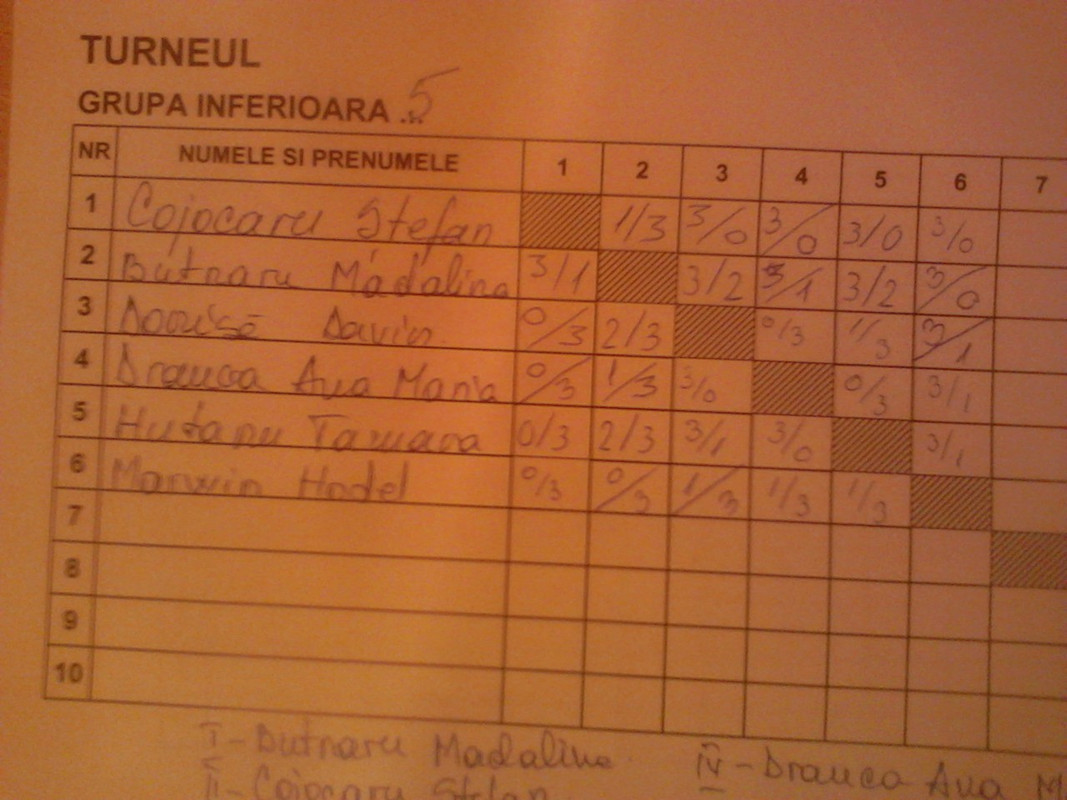 TURNEUL
GRUPA INFERIOARA ..5
NR NUMELE SI PRENUMELE 1 2 3 4 5 6 7
1 Cojocaru Stefan 1/3 3/0 3/0 3/0 3/0
2 Butnaru Madalina 3/1 3/2 3/1 3/2 3/0
3 0/3 2/3 0/3 1/3 3/1
4 Drauca Ana Maria 0/3 1/3 3/0 0/3 3/1
5 Hutanu Tamara 0/3 2/3 3/1 3/0 3/1
6 Marwin Hodel 0/3 0/3 1/3 1/3 1/3
7
8
9
10
I - Butnaru Madalina IV - Drauca Ana M
II - Cojocaru Stefan